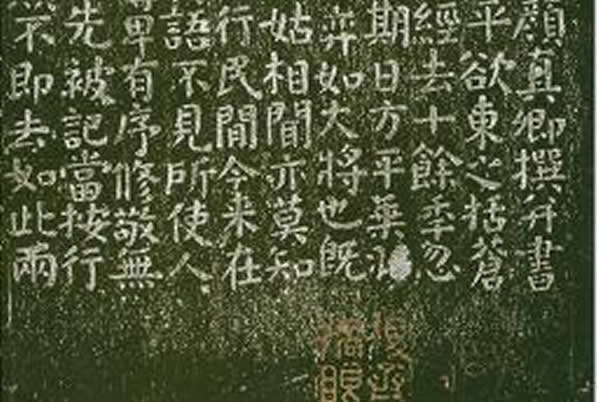 顏真卿撰并書
平欲東之括蒼
經去十餘秊忽
期日方平乗
弈如大將也既
姑相聞亦莫知
行民間今来在
語不見所使人
卑有序修敬無
先被記當按行
不即去如此兩